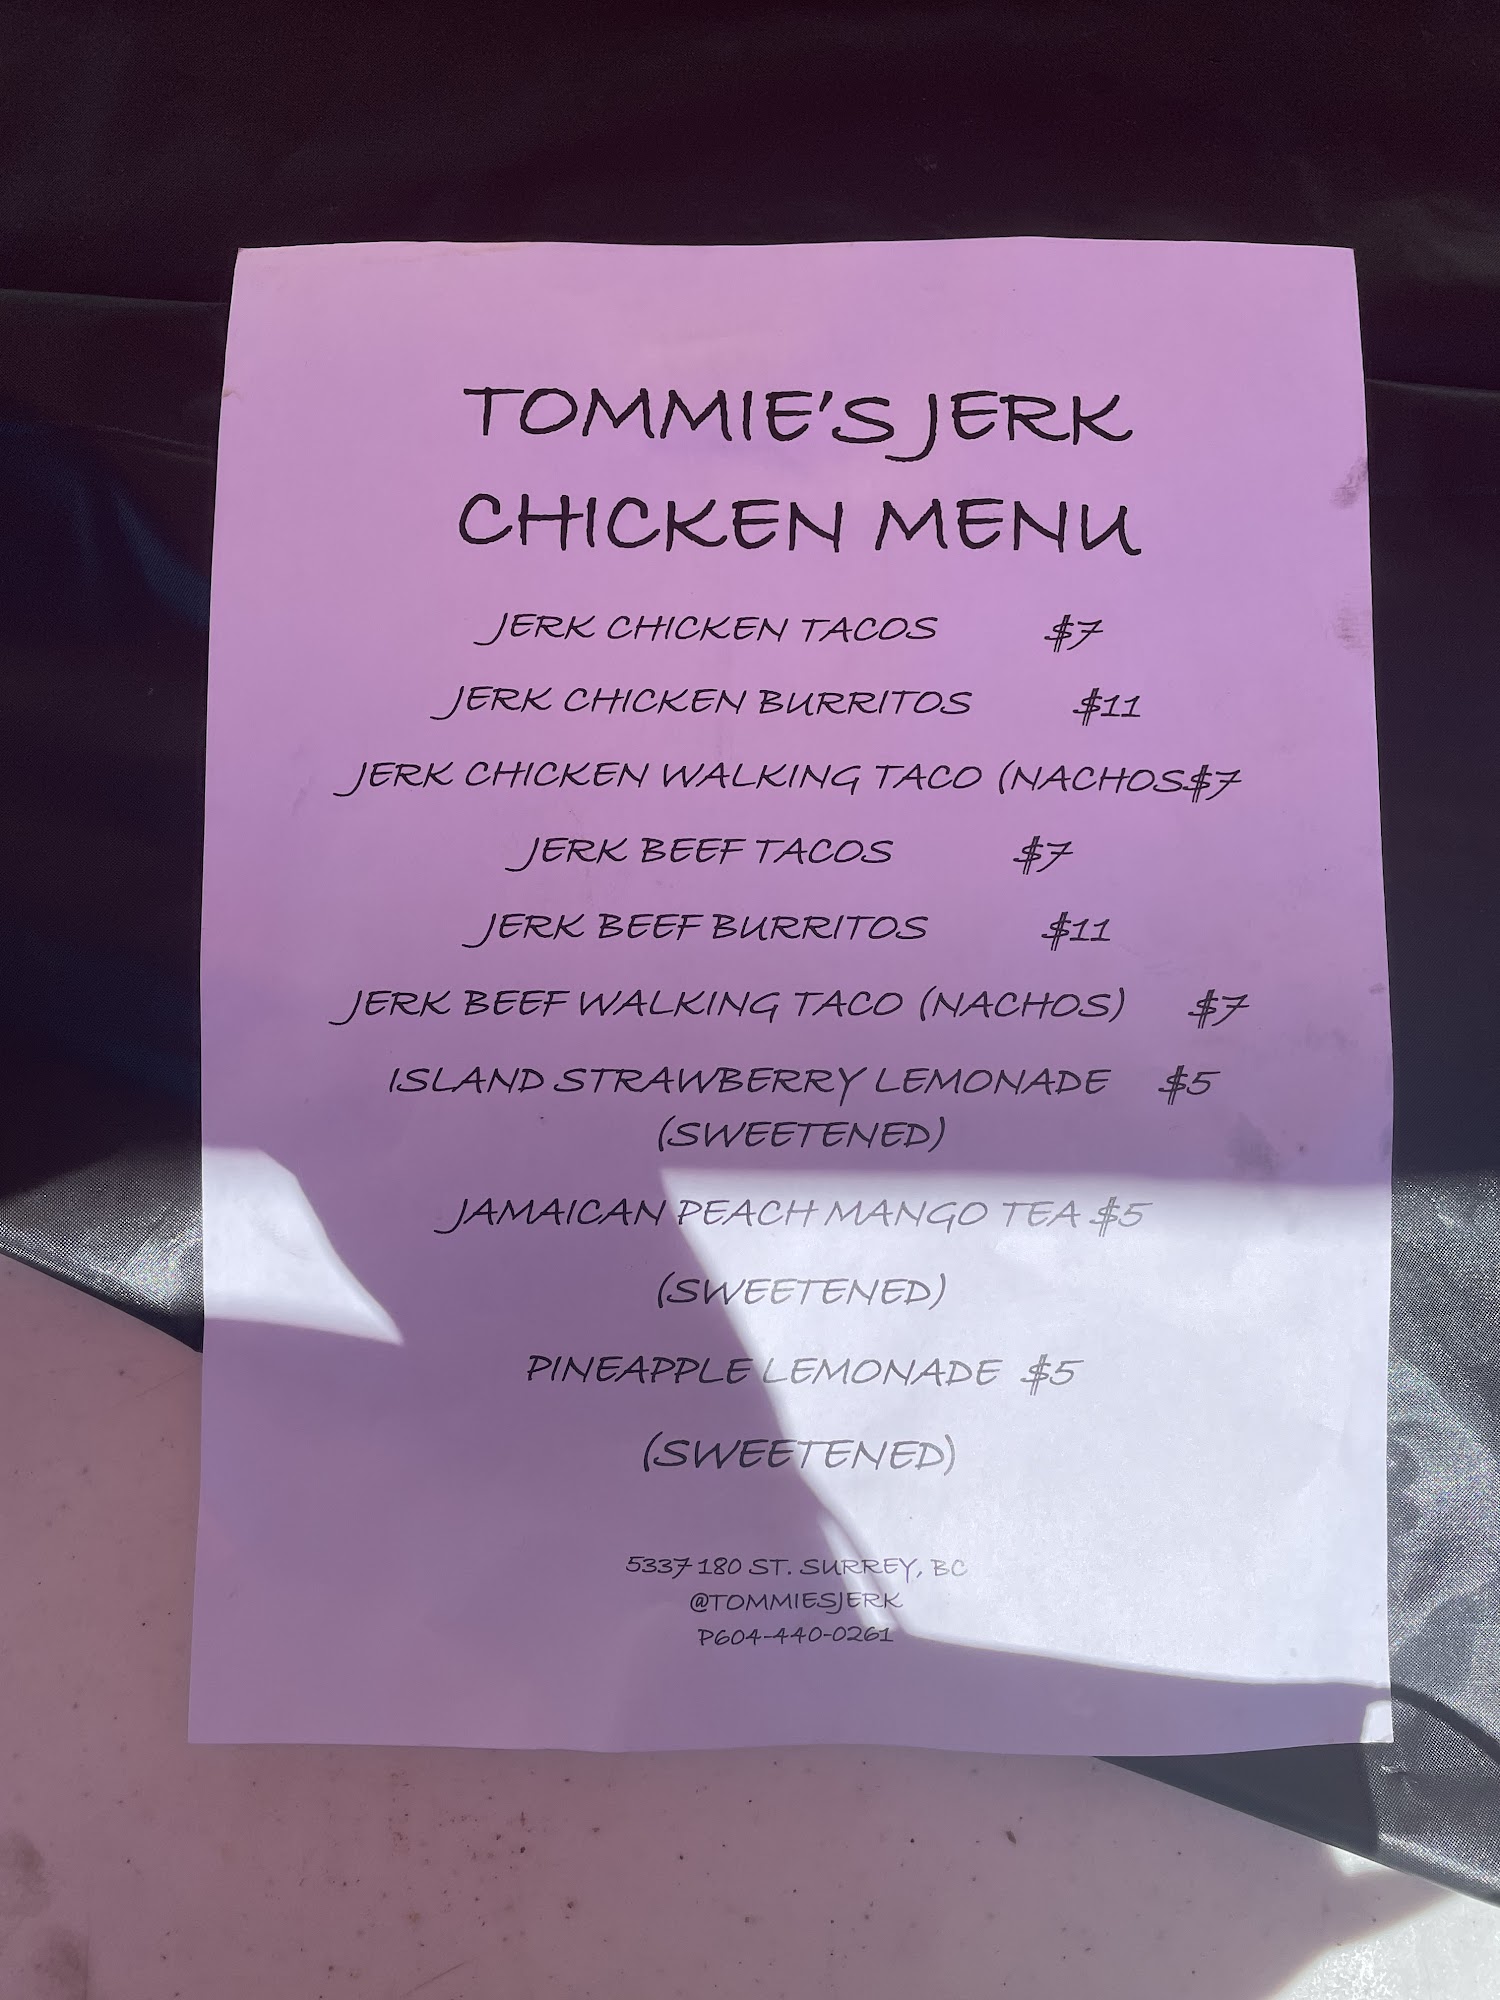 TOMMIE'S JERK
CHICKEN MENU
JERK CHICKEN TACOS $7
JERK CHICKEN BURRITOS $11
JERK CHICKEN WALKING TACO (NACHOS$7
JERK BEEF TACOS $7
JERK BEEF BURRITOS $11
JERK BEEF WALKING TACO (NACHOS) $7
ISLAND STRAWBERRY LEMONADE $5
(SWEETENED)
JAMAICAN PEACH MANGO TEA $5
(SWEETENED)
PINEAPPLE LEMONADE $5
(SWEETENED)
5337 180 ST. SURREY, BC
@TOMMIESJERK
P604-440-0261